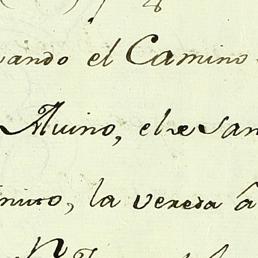 ando el Camino
Aluino, el de San
nito, la vereda â